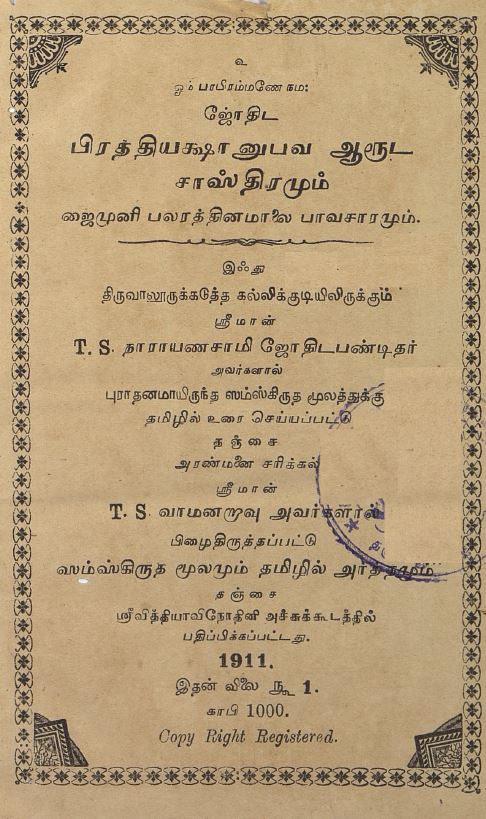 உ
ஓம் பரப்பிரம்மணே நம:
ஜோதிட
பிரத்தியக்ஷானுபவ ஆரூட
சாஸ்திரமும்
ஜைமுனி பலரத்தினமாலை பாவசாரமும்.
இஃது
திருவாலூருக்கடுத்த கல்லிக்குடியிலிருக்கும்
ஸ்ரீமான்
T. S. நாராயணசாமி ஜோதிடபண்டிதர்
அவர்களால்
புராதனமாயிருந்த ஸம்ஸ்கிருத மூலத்துக்கு
தமிழில் உரை செய்யப்பட்டு
தஞ்சை
அரண்மனை சரிக்கல்
ஸ்ரீமான்
T. S. வாமனறாவு அவர்களால்
பிழைதிருத்தப்பட்டு
ஸம்ஸ்கிருத மூலமும் தமிழில் அர்த்தமும்
தஞ்சை
ஸ்ரீவித்தியாவிநோதினி அச்சுக்கூடத்தில்
பதிப்பிக்கப்பட்டது.
1911.
இதன் விலை ரூ 1.
காபி 1000.
Copy Right Registered.